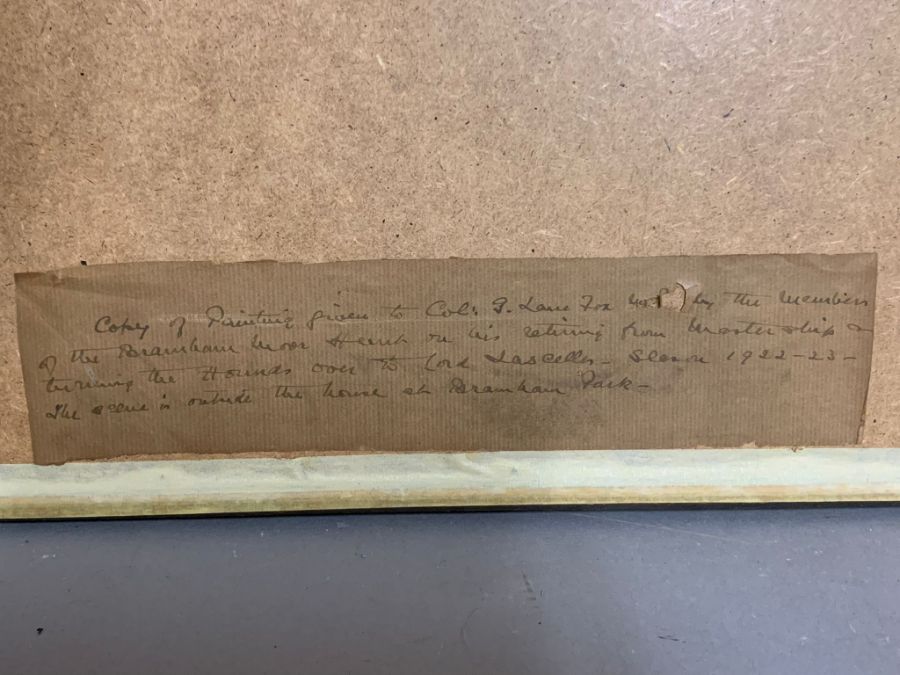 Copy of Painting given to Col: G. Lane Fox by the members
of the Bramham Moor Hunt on his retiring from Mastership &
turning the Hounds over to Lord Lascelles - Season 1922-23-
The scene is outside the house at Bramham Park-